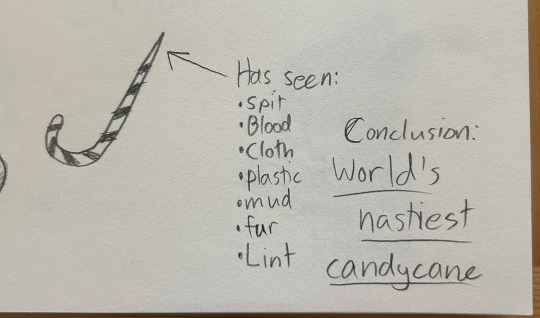 Has seen:
•Spit
•Blood
•Cloth
•plastic
•mud
•fur
•Lint
Conclusion:
World's
nastiest
candycane